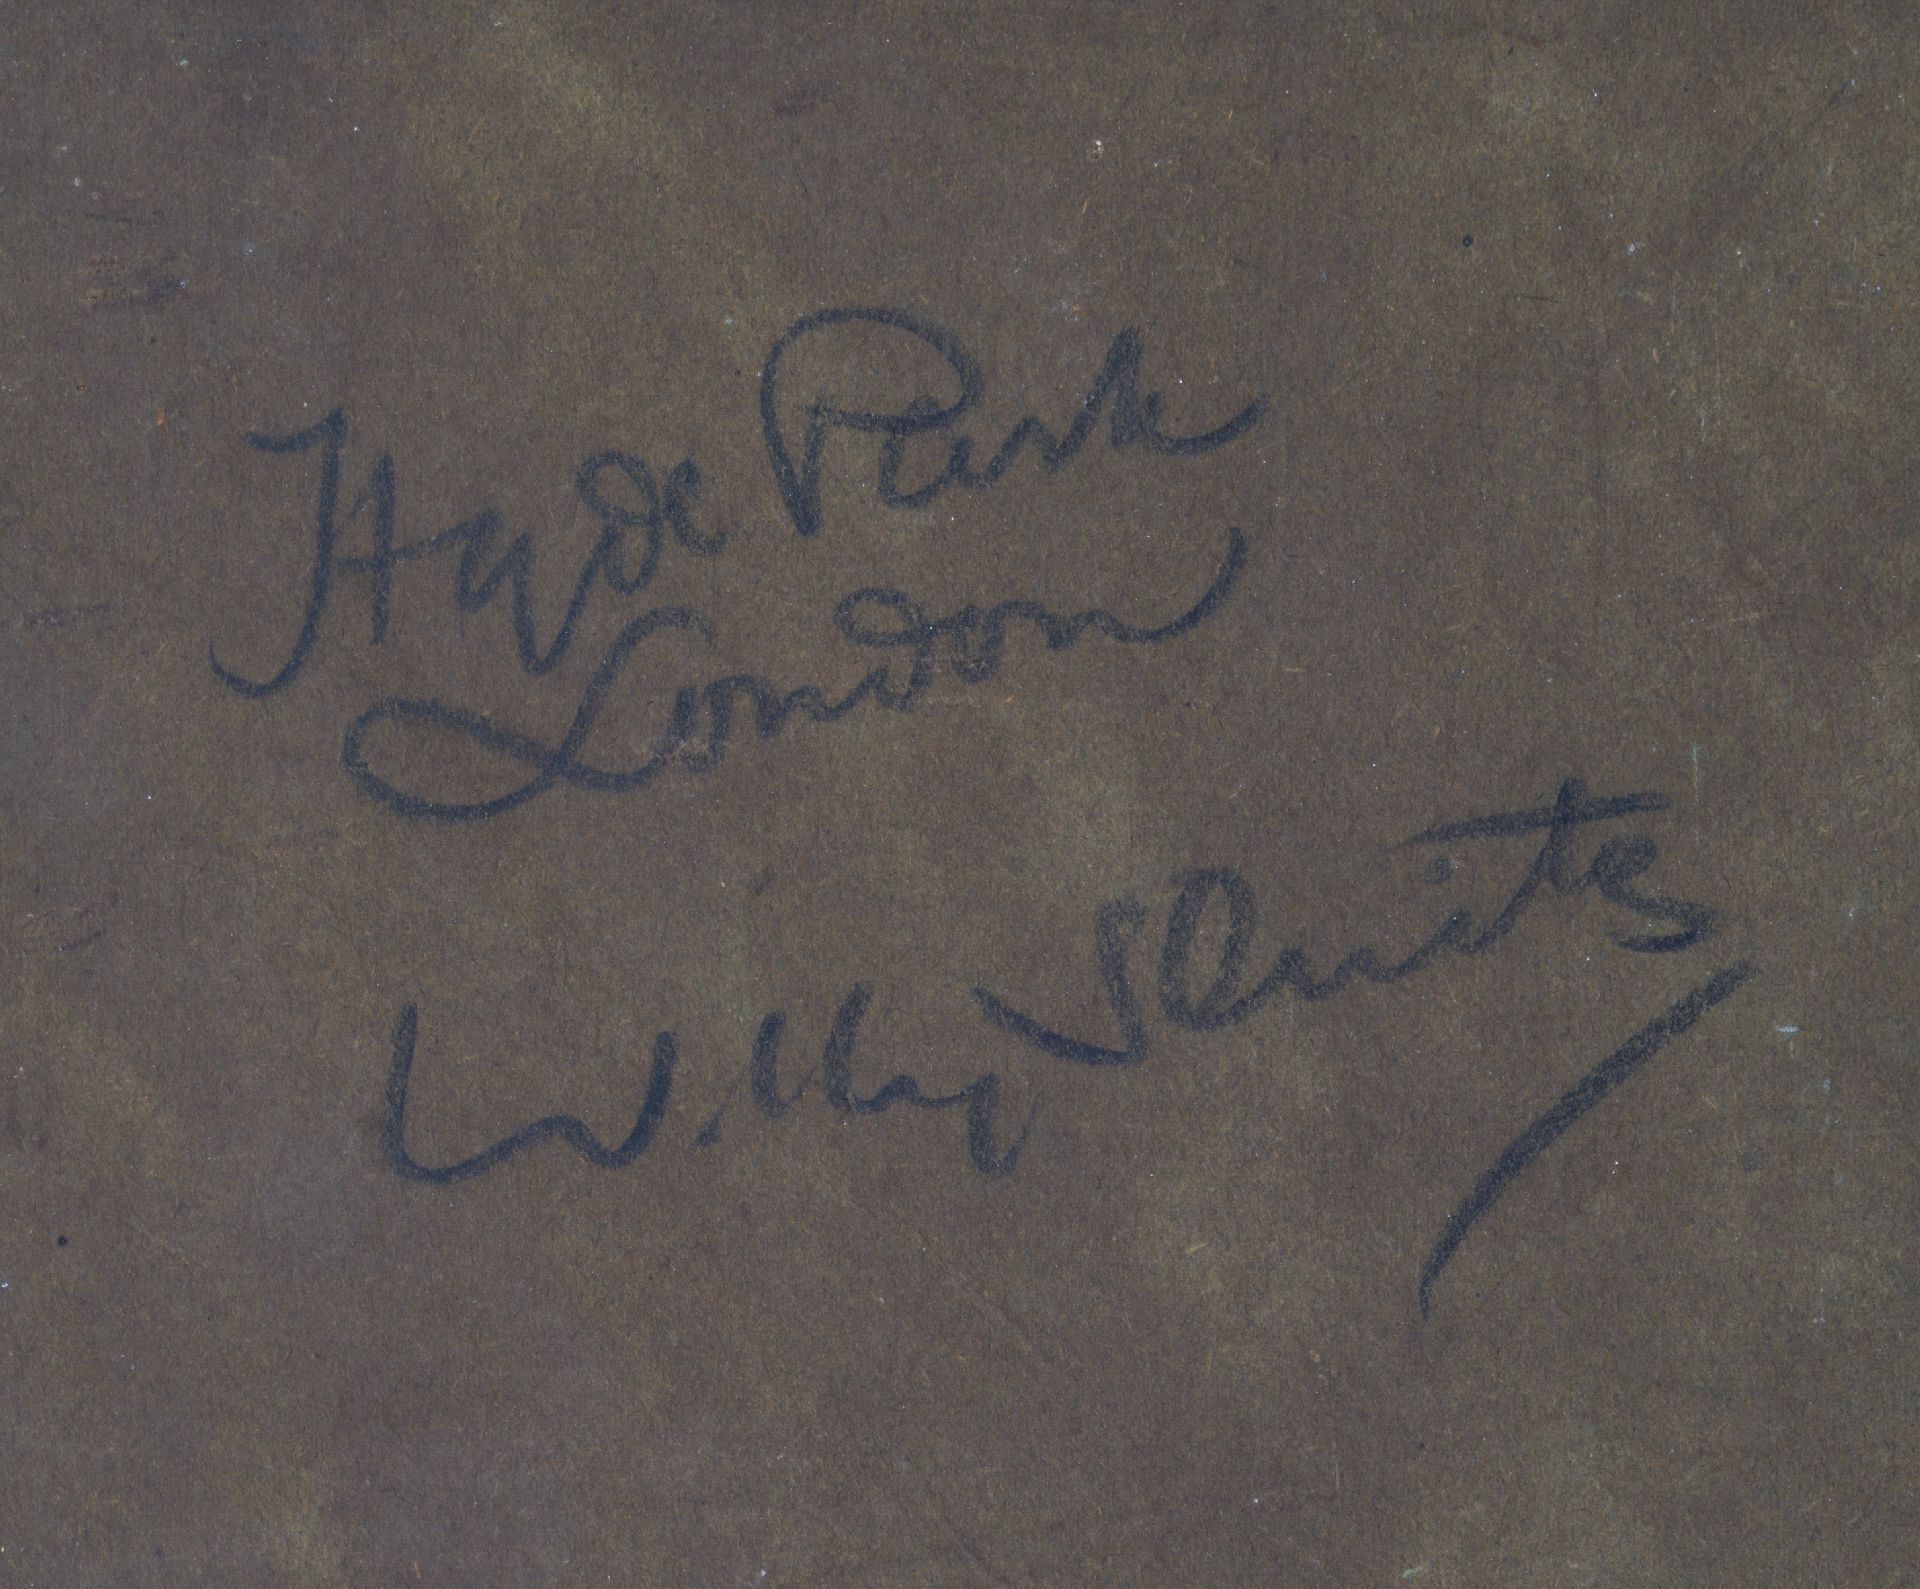 Hyde Park
London
Willy Sluiters